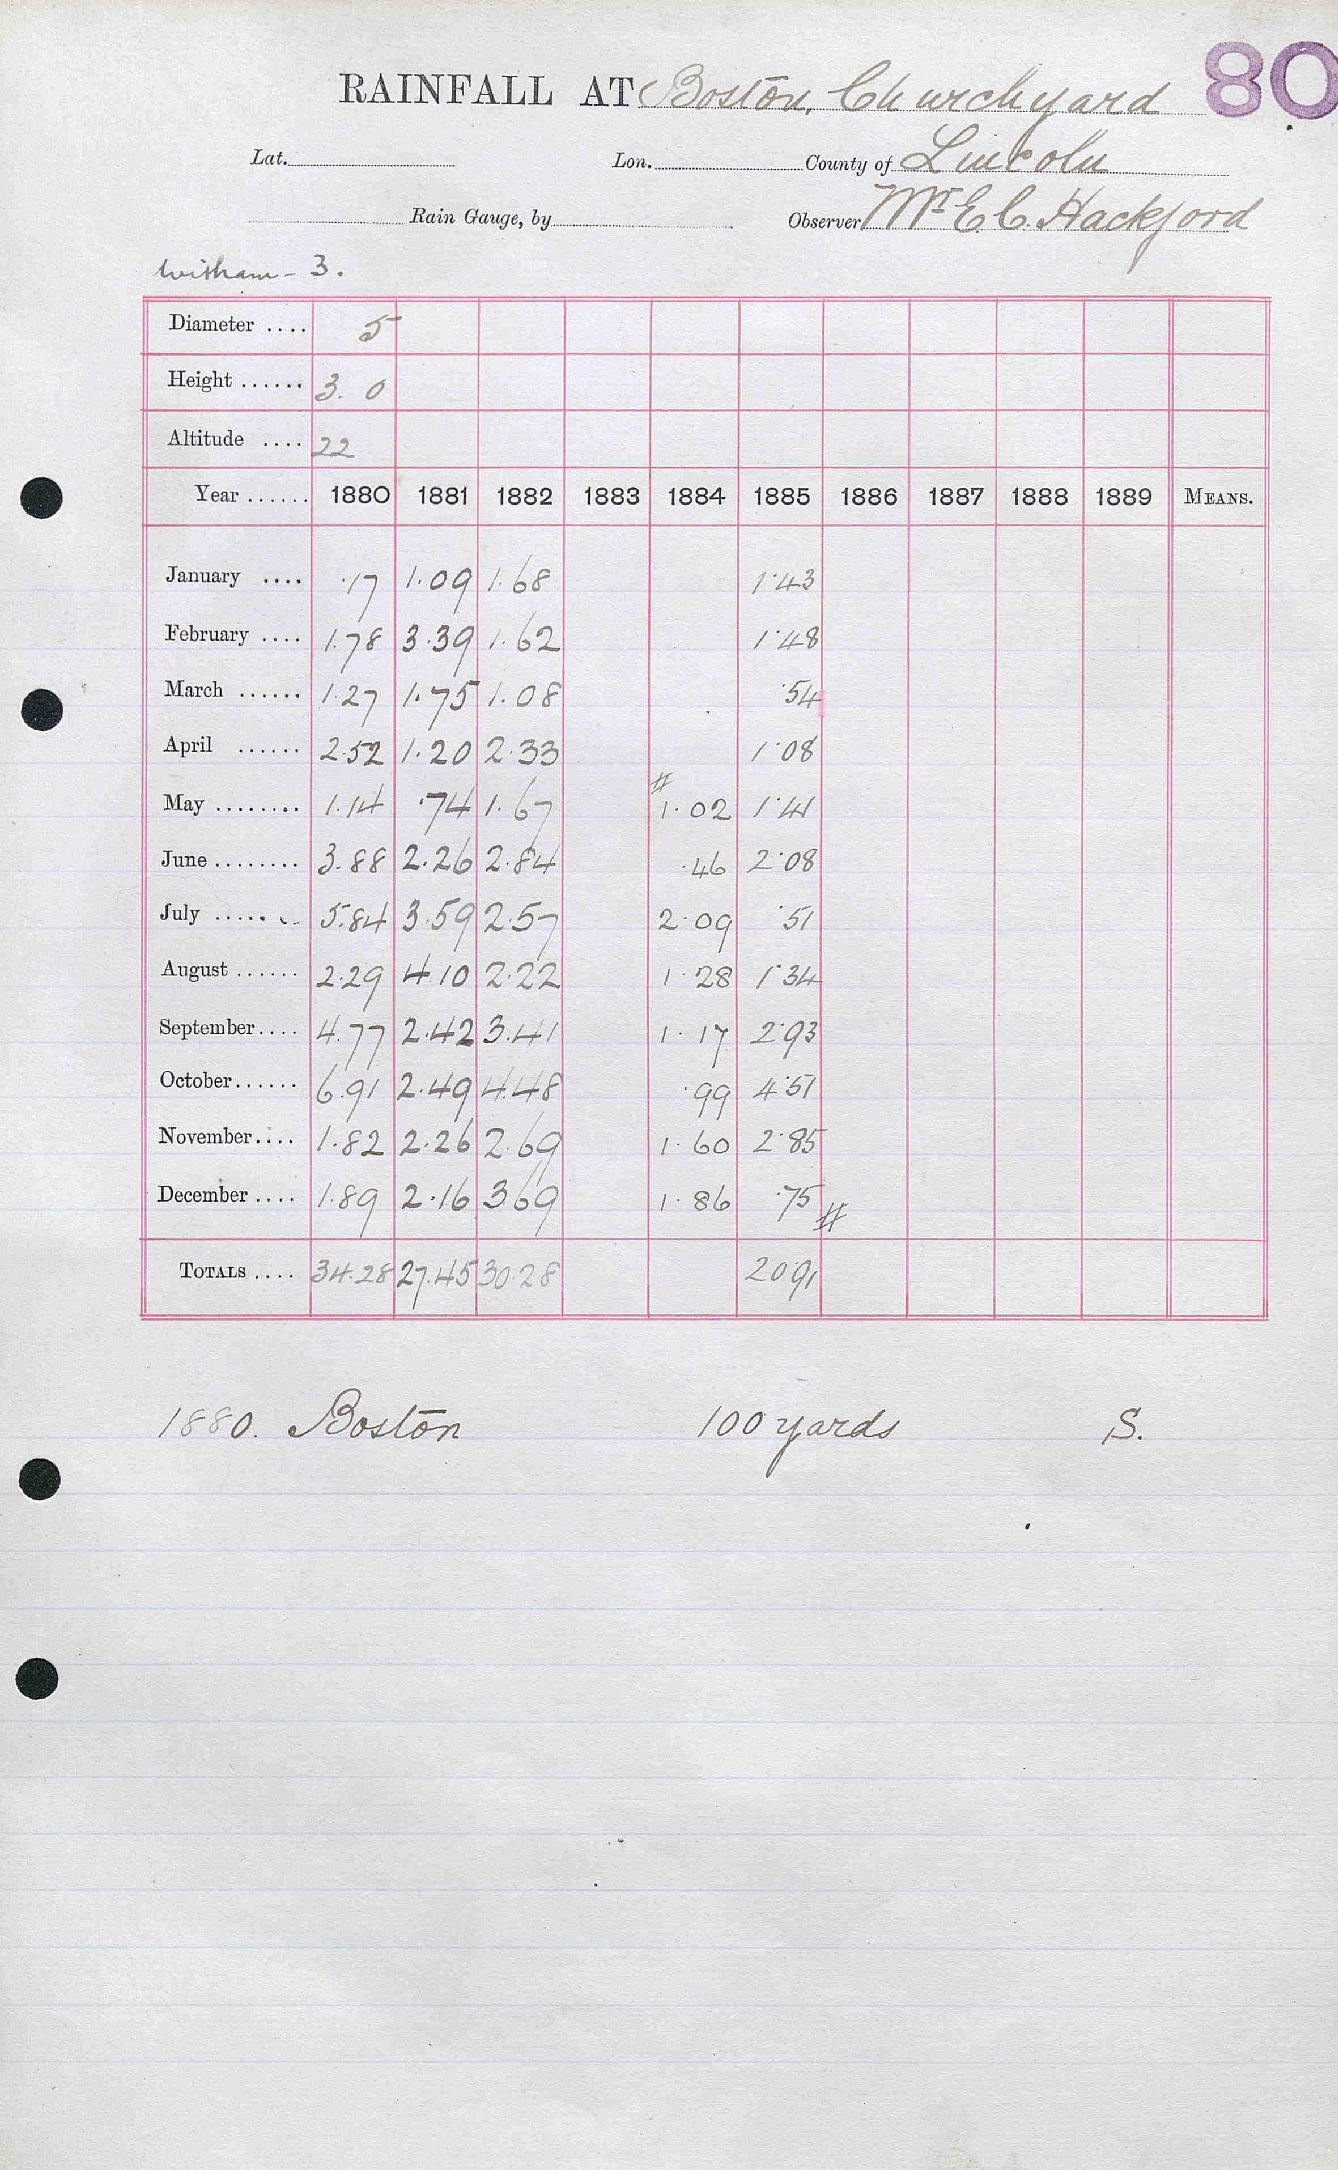 RAINFALL AT Boston, Churchyard 80
Lat. Lon. County of Lincoln
Rain Gauge, by Observer Mr E C. Hackford
Witham - 3.
Diameter .... 5
Height ...... 3. 0
Altitude .... 22
Year ...... 1880 1881 1882 1883 1884 1885 1886 1887 1888 1889 MEANS.
January .... .17 1.09 1.68 1.43
February .... 1.78 3.39 1.62 1.48
March ...... 1.27 1.75 1.08 .54
April ...... 2.52 1.20 2.33 1.08
May ........ 1.14 .74 1.67 # 1.02 1.41
June ........ 3.88 2.26 2.84 .46 2.08
July ...... 5.84 3.59 2.57 2.09 .51
August ...... 2.29 4.10 2.22 1.28 1.34
September .... 4.77 2.42 3.41 1.17 2.93
October ...... 6.91 2.49 4.48 .99 4.51
November .... 1.82 2.26 2.69 1.60 2.85
December .... 1.89 2.16 3 69 1.86 .75 #
TOTALS .... 34.28 27.45 30.28 20.91
1880. Boston 100 yards S.